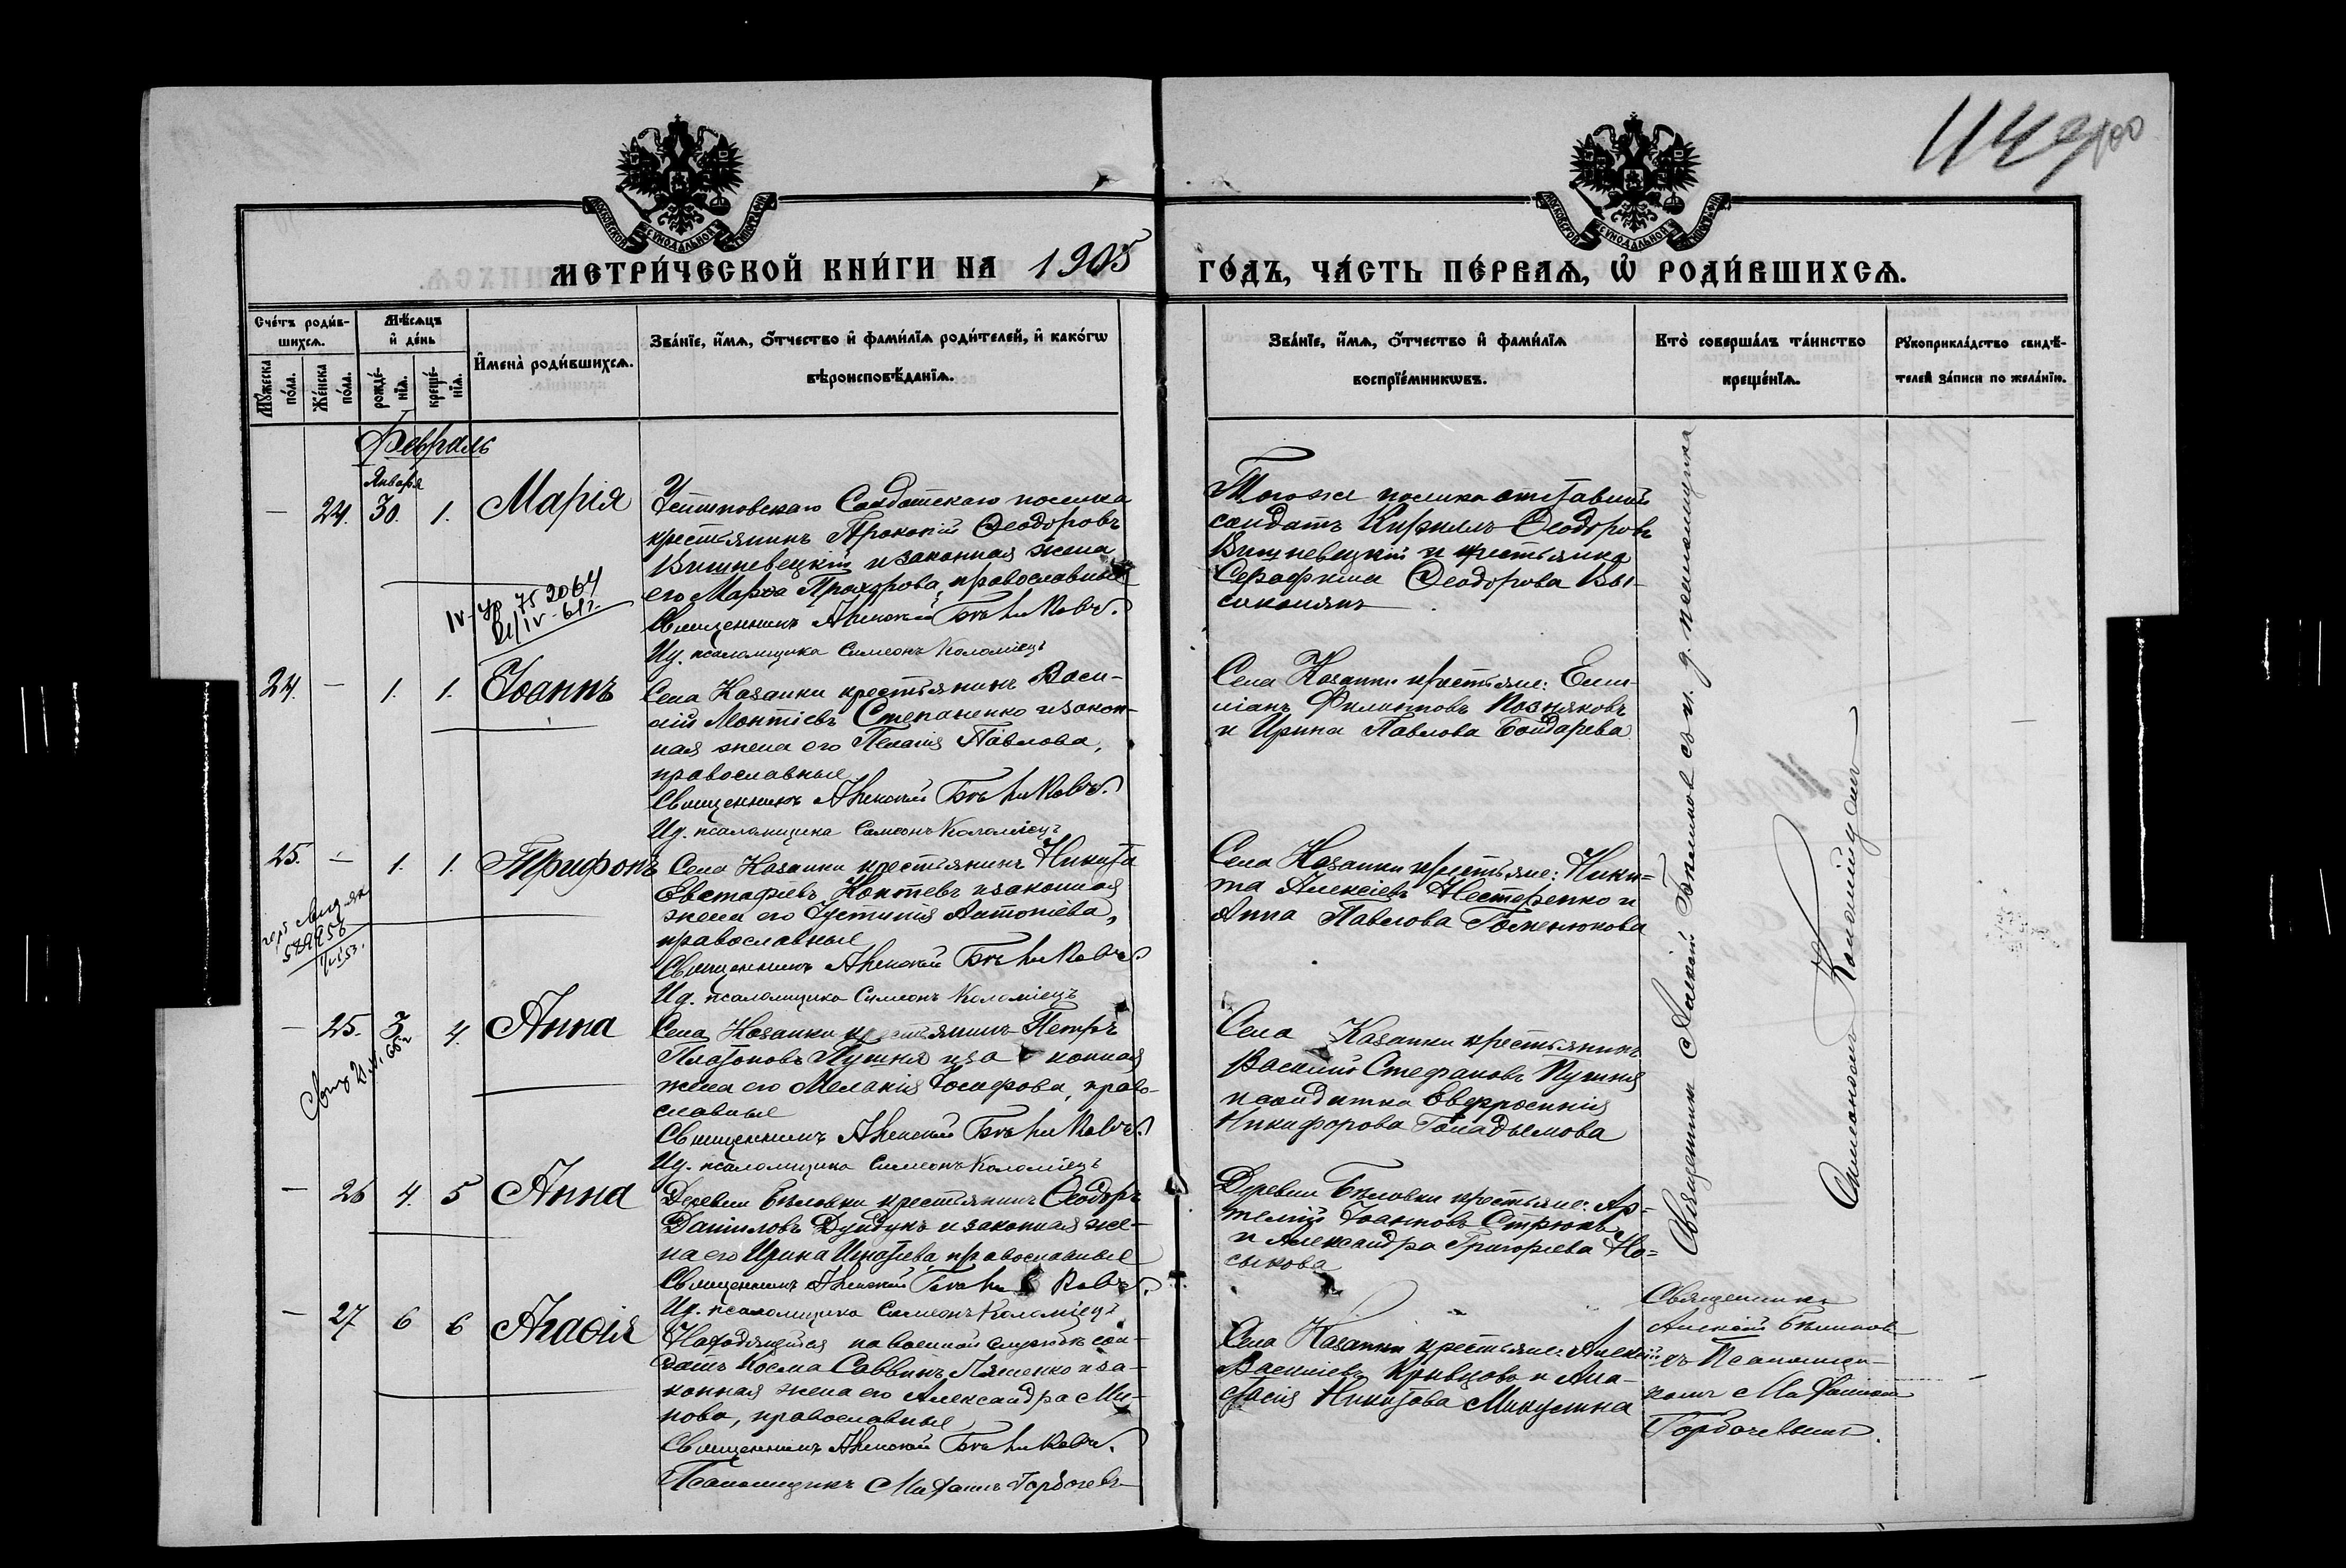 МЕТРИ́ЧЕСКОЙ КНИ́ГИ НА 1905 ГО́ДЪ, ЧА́СТЬ ПЕ́РВАЯ, Ѽ РОДИ́ВШИХСѦ.
Сче́тъ роди́в-
шихсѧ.
Мꙋ́жеска
по́ла.
Же́нска
по́ла.
Мѣ́сѧцъ
и҆ де́нь
рожде́-
нїѧ.
креще́-
нїѧ.
И҆мена̀ роди́вшихсѧ.
Зва́нїе, и҆́мѧ, ѻ҆́тчество и҆ фами́лїѧ роди́телей, и҆ како́гѡ
вѣроисповѣ́данїѧ.
Зва́нїе, и҆́мѧ, ѻ҆́тчество и҆ фами́лїѧ
воспрїе́мникѡвъ.
Кто̀ соверша́лъ та́инство
креще́нїѧ.
Рꙋкоприкла́дство свидѣ́-
телей за́писи по жела́нїю.
Февраль
Января
— 24. 30. 1. Марія
Солдатскаго поселка
крестьянинъ Прокопій Ѳеодоровъ
Вишневецкій и законная жена
его Марѳа Прохорова, православные
Священникъ Алексій
Ид. псаломщика Симеонъ Коломіецъ
Тогоже поселка отставной
солдатъ Кириллъ Ѳеодоровъ
Вишневецкій и крестьянка
Серафима Ѳеодорова
24. — 1. 1. Іоаннъ
Села Казанки крестьянинъ Васи-
лій Степаненко и закон-
ная жена его Пелагія Павлова,
православные
Священникъ Алексій
Ид. псаломщика Симеонъ Коломіецъ
Села Казанки крестьяне: Еми-
ліанъ Филиповъ Позняковъ
и Ирина Павлова Бондарева
25. — 1. 1. Трифонъ
Села Казанки крестьянинъ Никита
Евстафіевъ и законная
жена его Іустинія Антоніева,
православные
Священникъ Алексій
Ид. псаломщика Симеонъ Коломіецъ
Села Казанки крестьяне: Ники-
та Алексіевъ Нестеренко и
Анна Павлова
— 25. 3. 4. Анна
Села Казанки крестьянинъ Петръ
Платоновъ и законная
жена его Меланія Іосифова, право-
славные
Священникъ Алексій
Ид. псаломщика Симеонъ Коломіецъ
Села Казанки крестьянинъ
Василій Стефановъ
и солдатка Евфросинія
Никифорова
— 26 4. 5 Анна
Деревни Бѣловки крестьянинъ Ѳеодоръ
Даниловъ Дундукъ и законная же-
на его Ирина Игнатіева, православные
Священникъ Алексій
Ид. псаломщика Симеонъ Коломіецъ
Деревни Бѣловки крестьяне: Ар-
темій Іоанновъ Стрюкъ
и Александра Григоріева Но-
сикова
— 27 6 6 Агаѳія
Находящійся на военной службѣ сол-
датъ Косма Саввинъ Ляшенко и за-
конная жена его Александра Ми-
нова, православные
Священникъ Алексій
Псаломщикъ Горбачевъ
Села Казанки крестьяне: Алексій
Василіевъ Кривцовъ и Ана-
стасія Никитова Микулина
Священникъ Алексій съ и. д. псаломщика
Симеономъ Коломійцемъ
Священникъ
Алексій
съ Псаломщи-
комъ
Горбачевымъ.